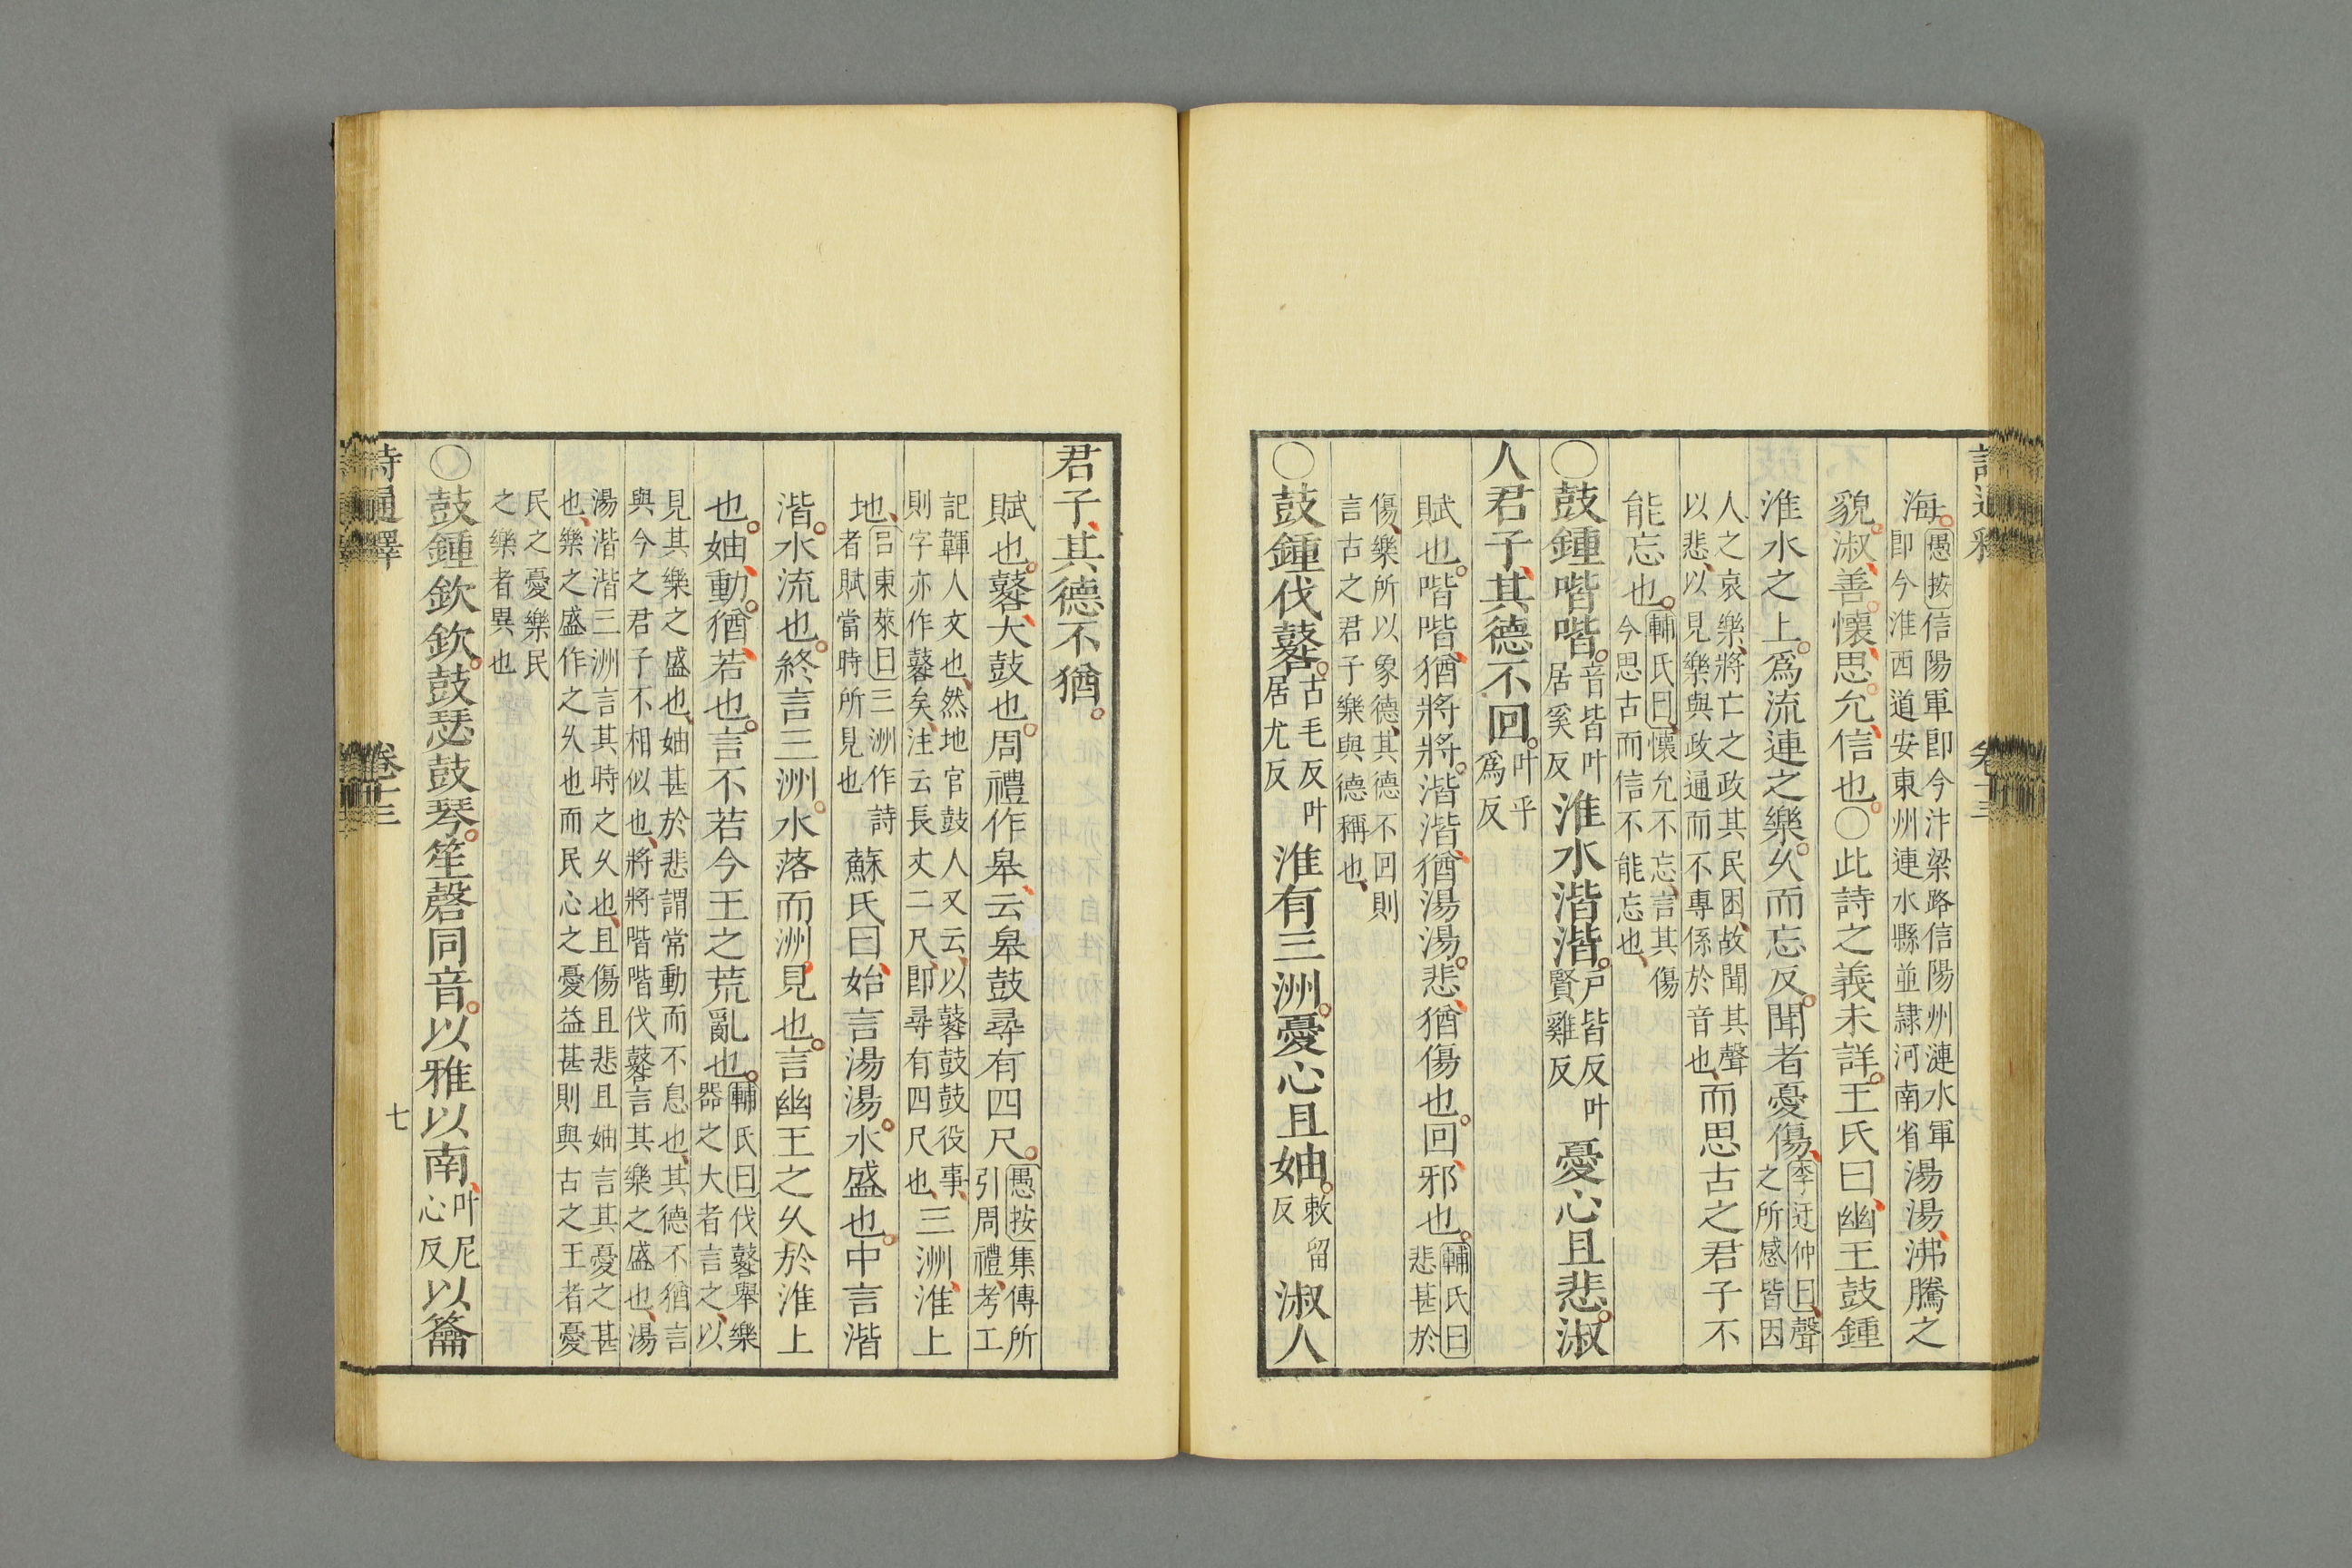 詩通釋 卷十三
海。愚按信陽軍即今汴梁路信陽州漣水軍即今淮西道安東州連水縣並隷河南省湯湯、沸騰之
貌。淑、善。懷、思。允、信也。○此詩之義未詳。王氏曰、幽王鼓鍾
淮水之上。爲流連之樂。乆而忘反。聞者憂傷、李迂仲曰、聲之所感皆因
人之哀樂、將亡之政其民困、故聞其聲以悲、以見樂與政通而不專係於音也、而思古之君子不
能忘也。輔氏曰、懷允不忘、言其傷今思古而信不能忘也、
○鼓鍾喈喈。音皆叶居奚反淮水湝湝。戶皆反叶賢雞反憂心且悲。淑
人君子、其德不回。叶乎爲反
賦也。喈喈、猶將將。湝湝、猶湯湯。悲、猶傷也。回、邪也。輔氏曰悲甚於
傷、樂所以象德、其德不回則言古之君子樂與德稱也、
○鼓鍾伐鼛。古毛反叶居尤反淮有三洲。憂心且妯。敕留反淑人
君子、其德不猶。
賦也。鼛、大鼓也。周禮作皋、云皋鼓尋有四尺。愚按集傳所引周禮、考工
記韗人文也、然地官鼓人又云、以鼛鼓鼓役事、則字亦作鼛矣、注云長丈二尺、即尋有四尺也、三洲、淮上
地、呂東萊曰三洲作詩者賦當時所見也蘇氏曰、始言湯湯。水盛也。中言湝
湝。水流也。終言三洲。水落而洲見也。言幽王之乆於淮上
也。妯、動。猶、若也。言不若今王之荒亂也。輔氏曰伐鼛舉樂器之大者言之、以
見其樂之盛也、妯甚於悲謂常動而不息也、其德不猶言與今之君子不相似也、將將喈喈伐鼛言其樂之盛也、湯
湯湝湝三洲言其時之乆也、且傷且悲且妯言其憂之甚也、樂之盛作之乆也而民心之憂益甚則與古之王者憂
民之憂樂民之樂者異也
○鼓鍾欽欽。鼓瑟鼓琴。笙磬同音。以雅以南、叶尼心反以籥
詩通釋 卷十三 七